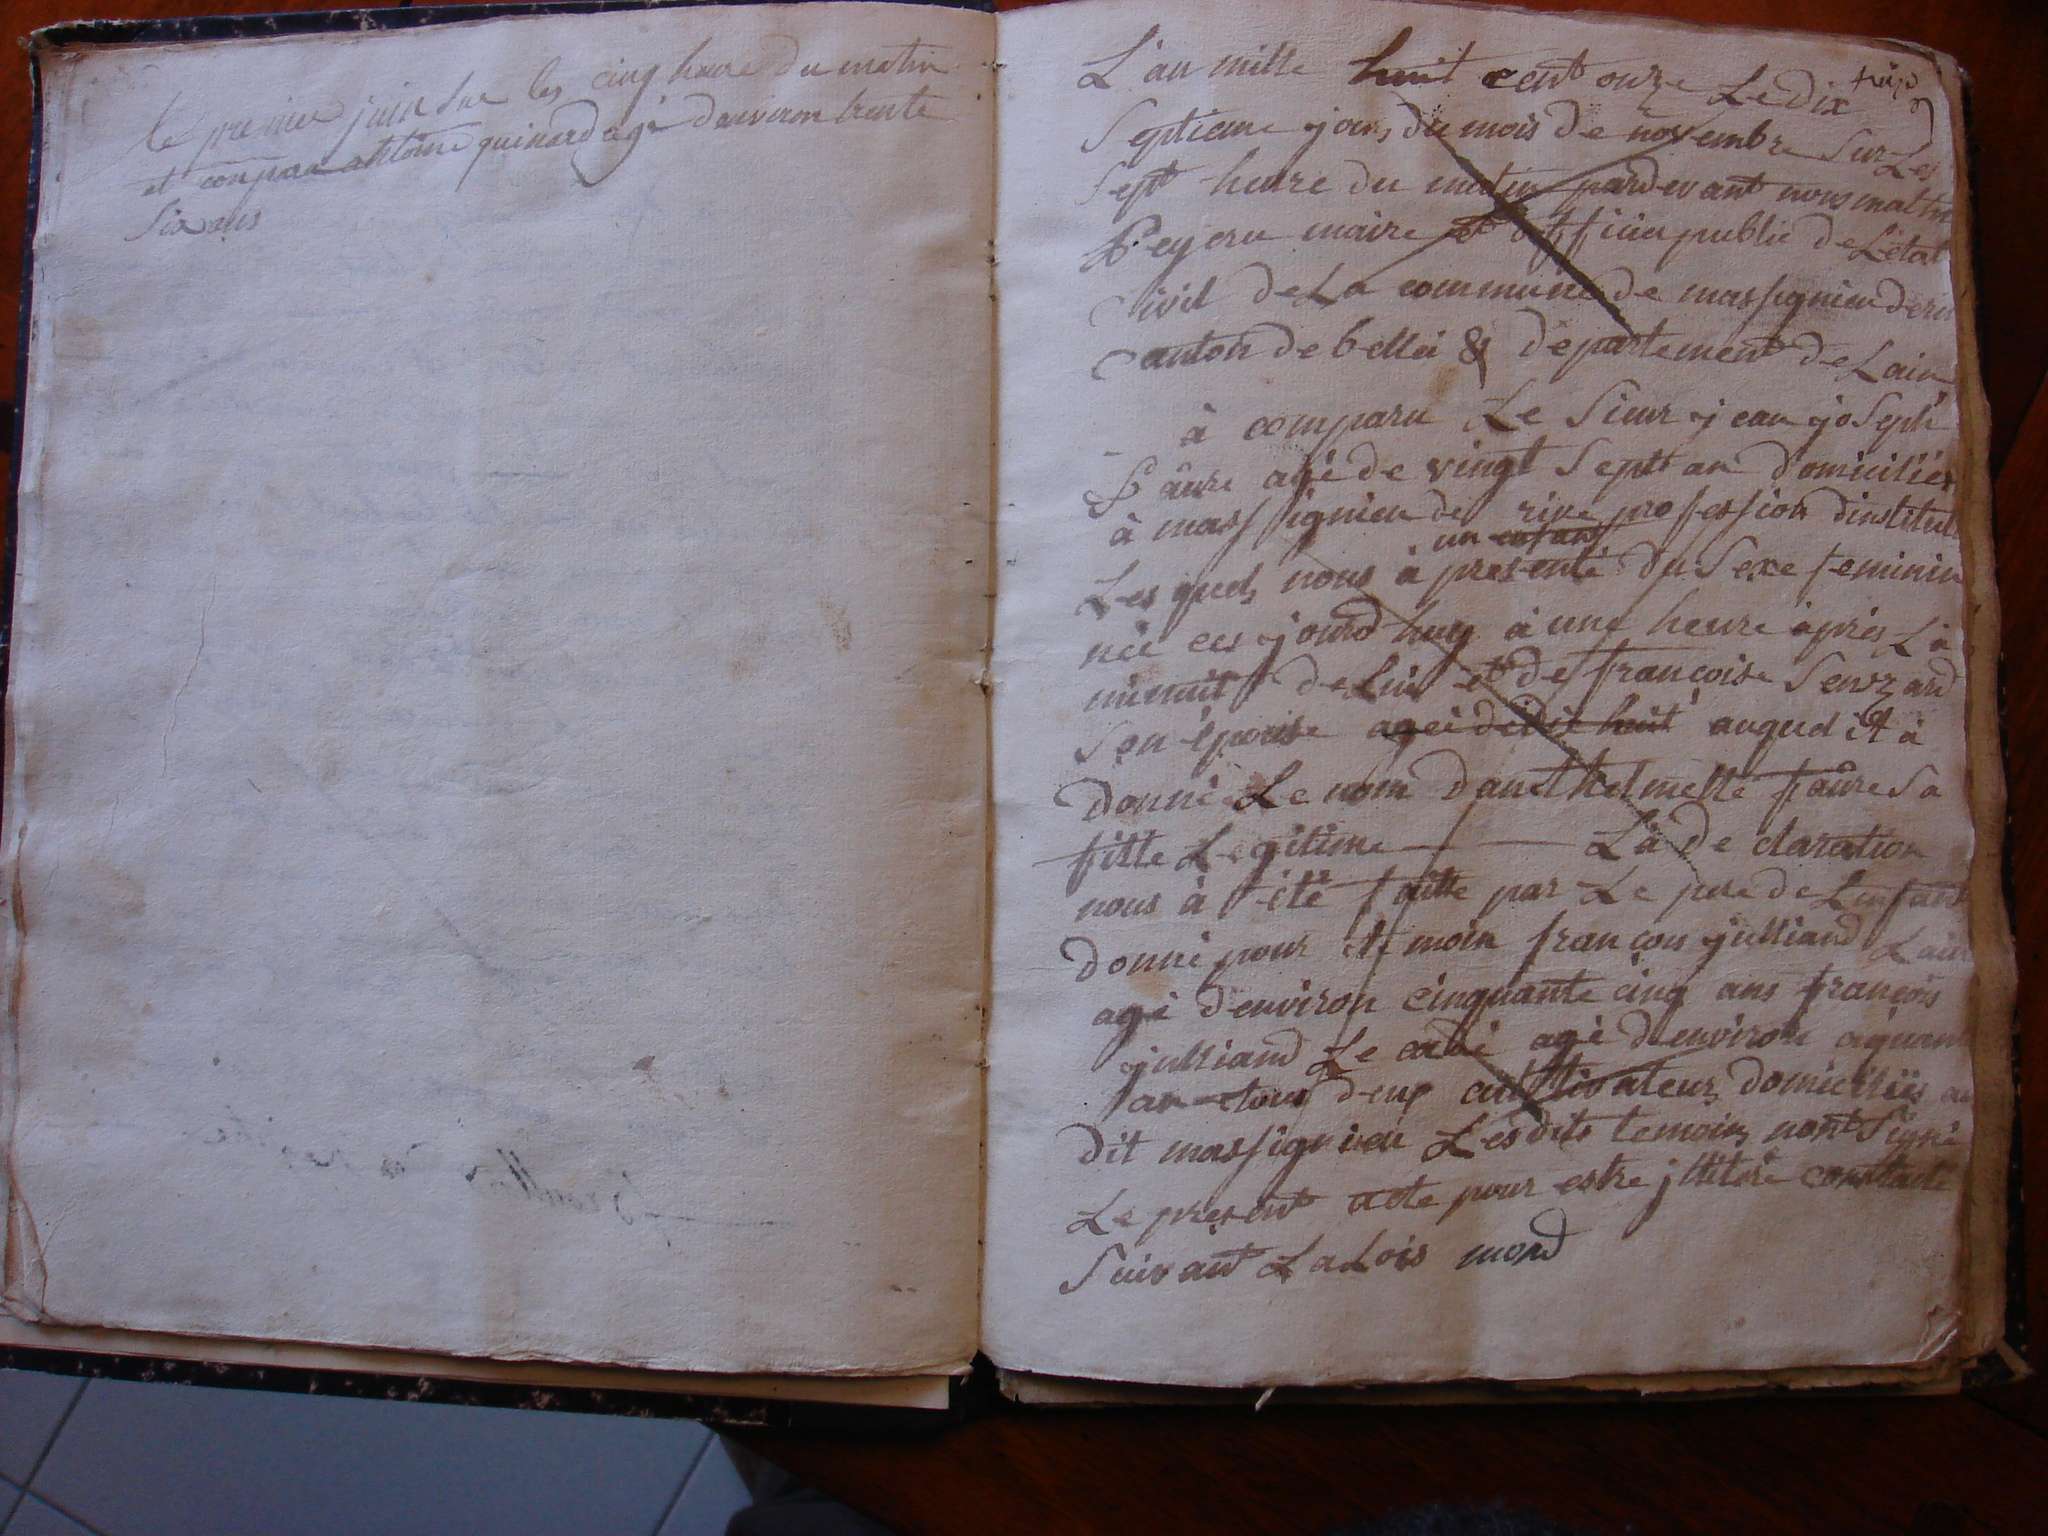 le premier juin sur les cinq heure du matin
et comparu antoine quinard agé denviron trente
six ans
L'an mille huit cent onze Le dix
Septieme jour du mois de novembre Sur Les
Sept heure du matin pardevant nous
Peyeru maire et officier public de L'état
Civil de La commune de massignieu de
Canton de bellei & département de Lain
à comparu Le Sieur jean joseph
fâure agé de vingt Sept an domicilier
à massignieu de rive profession d'institut
un enfant
Les quel nous à presenté du Sexe feminin
née ces jourd huy à une heure àprés Là
minuit de Lui et de françoise Senzard
Son épouse ageé de dix huit auquel il à
donné Le nom d'anthelmette faûre Sa
fille Legitime Là de claration
nous à été faitte par Le pere de Lenfant
donné pour te moin francois julliand
agé d'environ cinquante cinq ans francois
julliand Le agé denviron
an tous deux cultivateur domiciliés au
dit massignieu Lesdits temoin nont Signé
Le present acte pour estre jllitéré constaté
Suivant La Lois mond